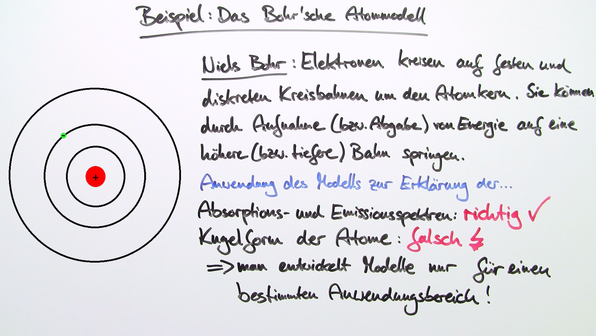 Beispiel: Das Bohr'sche Atommodell
Niels Bohr: Elektronen kreisen auf festen und
diskreten Kreisbahnen um den Atomkern. Sie können
durch Aufnahme (bzw. Abgabe) von Energie auf eine
höhere (bzw. tiefere) Bahn springen.
Anwendung des Modells zur Erklärung der...
Absorptions- und Emissionsspektren: richtig ✓
Kugelform der Atome: falsch ↯
=> man entwickelt Modelle nur für einen
bestimmten Anwendungsbereich!
+